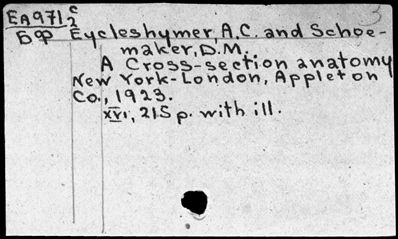 3
EA971 c/2
БФ Eycleshymer, A.C. and Schoe-
maker, D.M.
A Cross-section anatomy
New York-London, Appleton
Co., 1923.
XVI, 215 p. with ill.